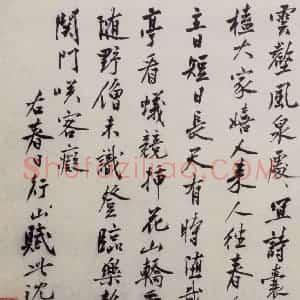 雲壑風泉處〻宜詩囊
榼大家嬉人来人往春
立日短日長天有時随
亭看蟻競掃花山轎
随野僧未識登臨樂
関門咲客癡
右春日行山賦此沈
Shufaziliao.com